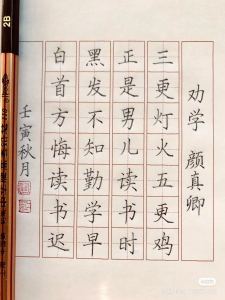 劝学 颜真卿
三更灯火五更鸡
正是男儿读书时
黑发不知勤学早
白首方悔读书迟
壬寅秋月
2B